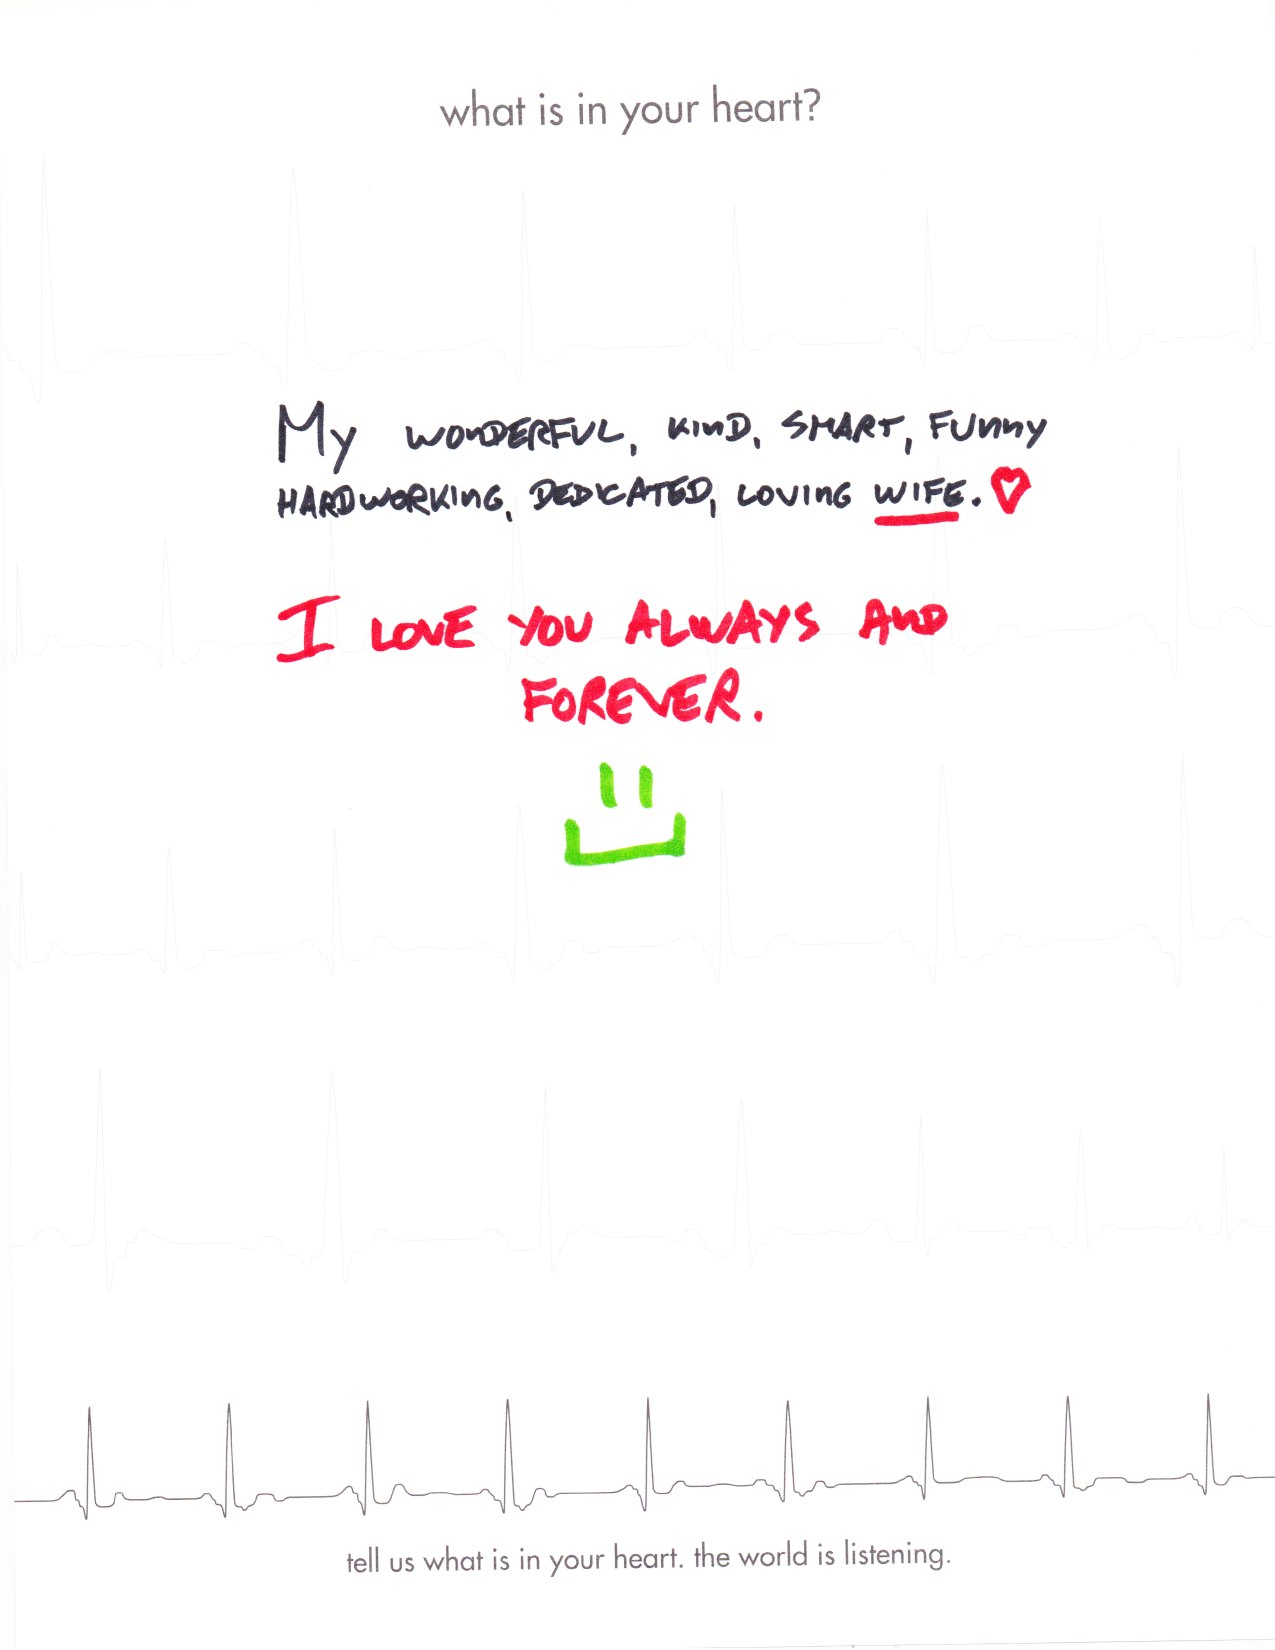 what is in your heart?
My WONDERFUL, KIND, SMART, FUNNY
HARDWORKING, DEDICATED, LOVING WIFE.
I LOVE YOU ALWAYS AND
FOREVER.
tell us what is in your heart. the world is listening.